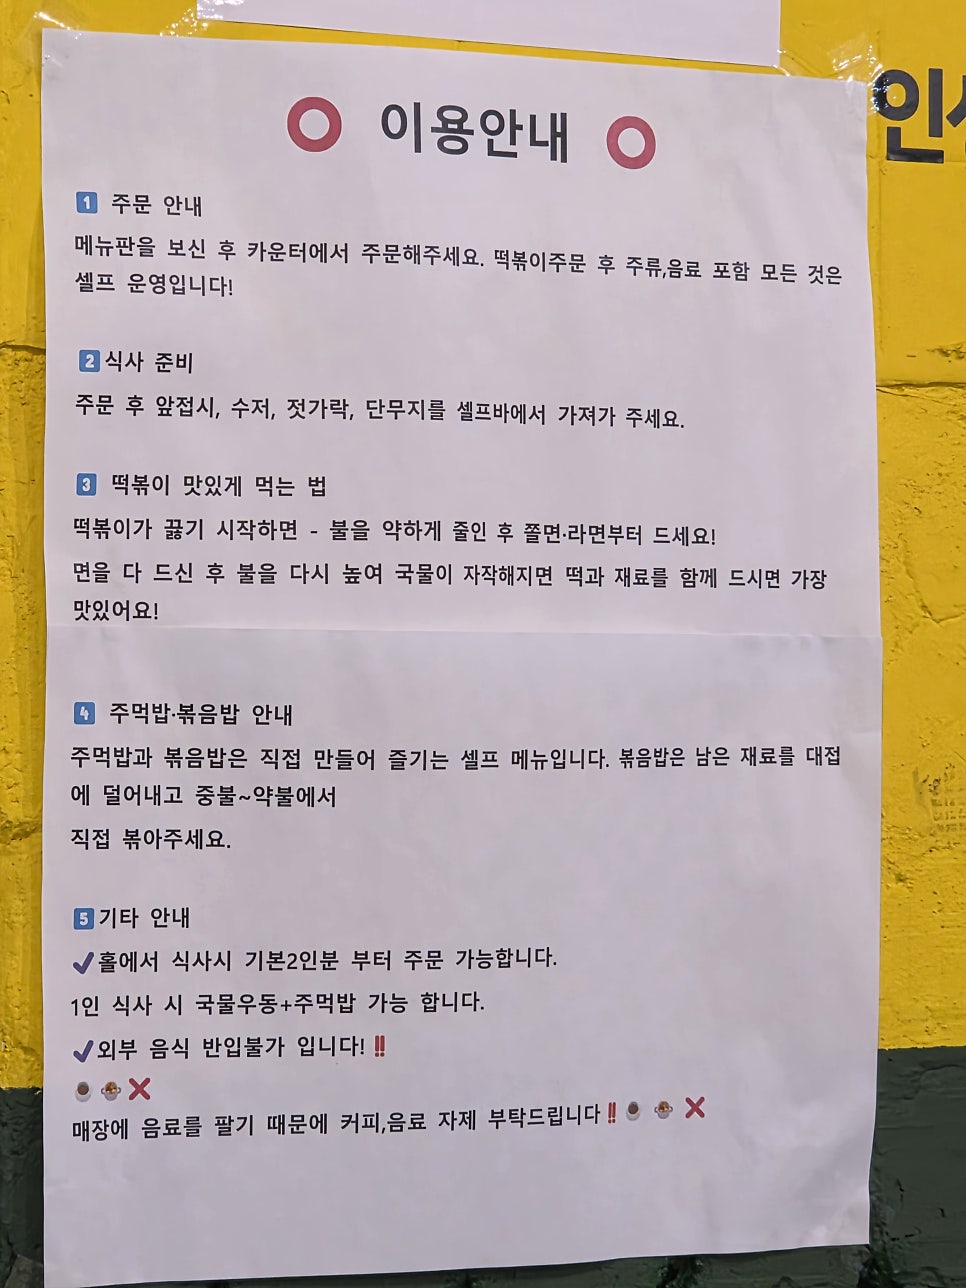 ⭕ 이용안내 ⭕
인
1️⃣ 주문 안내
메뉴판을 보신 후 카운터에서 주문해주세요. 떡볶이주문 후 주류,음료 포함 모든 것은
셀프 운영입니다!
2️⃣식사 준비
주문 후 앞접시, 수저, 젓가락, 단무지를 셀프바에서 가져가 주세요.
3️⃣ 떡볶이 맛있게 먹는 법
떡볶이가 끓기 시작하면 - 불을 약하게 줄인 후 쫄면·라면부터 드세요!
면을 다 드신 후 불을 다시 높여 국물이 자작해지면 떡과 재료를 함께 드시면 가장
맛있어요!
4️⃣ 주먹밥·볶음밥 안내
주먹밥과 볶음밥은 직접 만들어 즐기는 셀프 메뉴입니다. 볶음밥은 남은 재료를 대접
에 덜어내고 중불~약불에서
직접 볶아주세요.
5️⃣기타 안내
✔홀에서 식사시 기본2인분 부터 주문 가능합니다.
1인 식사 시 국물우동+주먹밥 가능 합니다.
✔외부 음식 반입불가 입니다!‼
매장에 음료를 팔기 때문에 커피,음료 자제 부탁드립니다‼